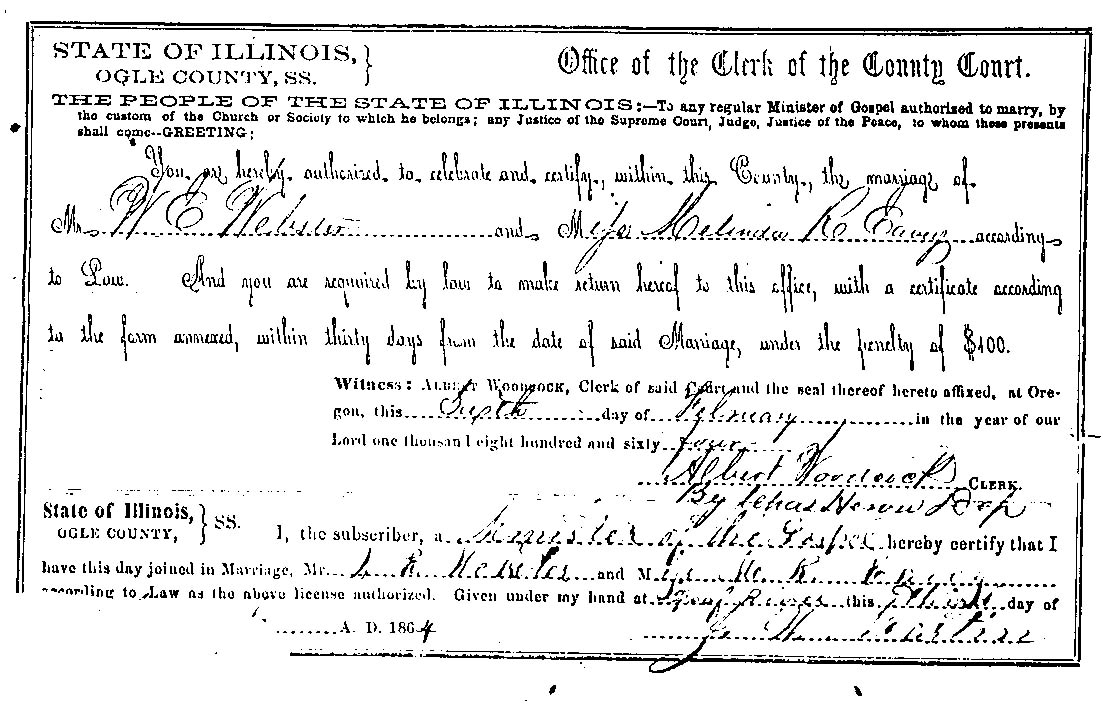 STATE OF ILLINOIS,
OGLE COUNTY, SS.
Office of the Clerk of the County Court.
THE PEOPLE OF THE STATE OF ILLINOIS:—To any regular Minister of Gospel authorized to marry, by
the custom of the Church or Society to which he belongs; any Justice of the Supreme Court, Judge, Justice of the Peace, to whom these presents
shall come--GREETING;
You are hereby authorized to celebrate and certify, within this County, the marriage of
Mr W E Webster and Miss Melinda R according
to Law. And you are required by law to make return hereof to this office, with a certificate according
to the form annexed, within thirty days from the date of said Marriage, under the penalty of $100.
Witness: ALBERT WOODCOCK, Clerk of said Court and the seal thereof hereto affixed, at Ore-
gon, this Sixth day of February in the year of our
Lord one thousand eight hundred and sixty four
Albert Woodcock CLERK.
By Chas Dep
State of Illinois,
OGLE COUNTY, SS.
I, the subscriber, a minister of the Gospel hereby certify that I
have this day joined in Marriage, Mr. Webster and Miss M. R.
according to Law as the above license authorized. Given under my hand at this day of
A. D. 1864